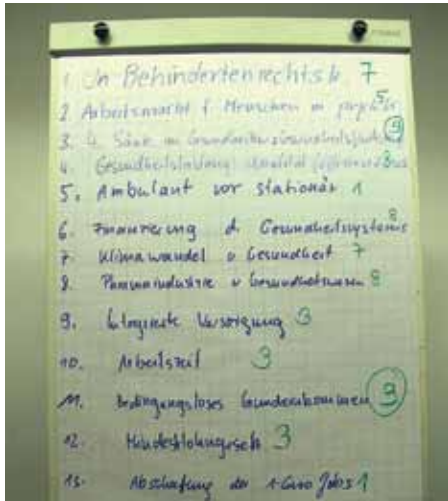 1. Un Behindertenrechtsk 7
2. Arbeitsmarkt f. Menschen m 5
3. 4. Säule im 9
4.
5. Ambulant vor stationär 1
6. Finanzierung d. Gesundheitssystems 8
7. Klimawandel u Gesundheit 7
8. Pharmaindustrie u Gesundheitswesen 8
9. Integrierte Versorgung 3
10. Arbeitszeit 3
11. Bedingungsloses Grundeinkommen 9
12. 3
13. Abschaffung der 1-Euro Jobs 1